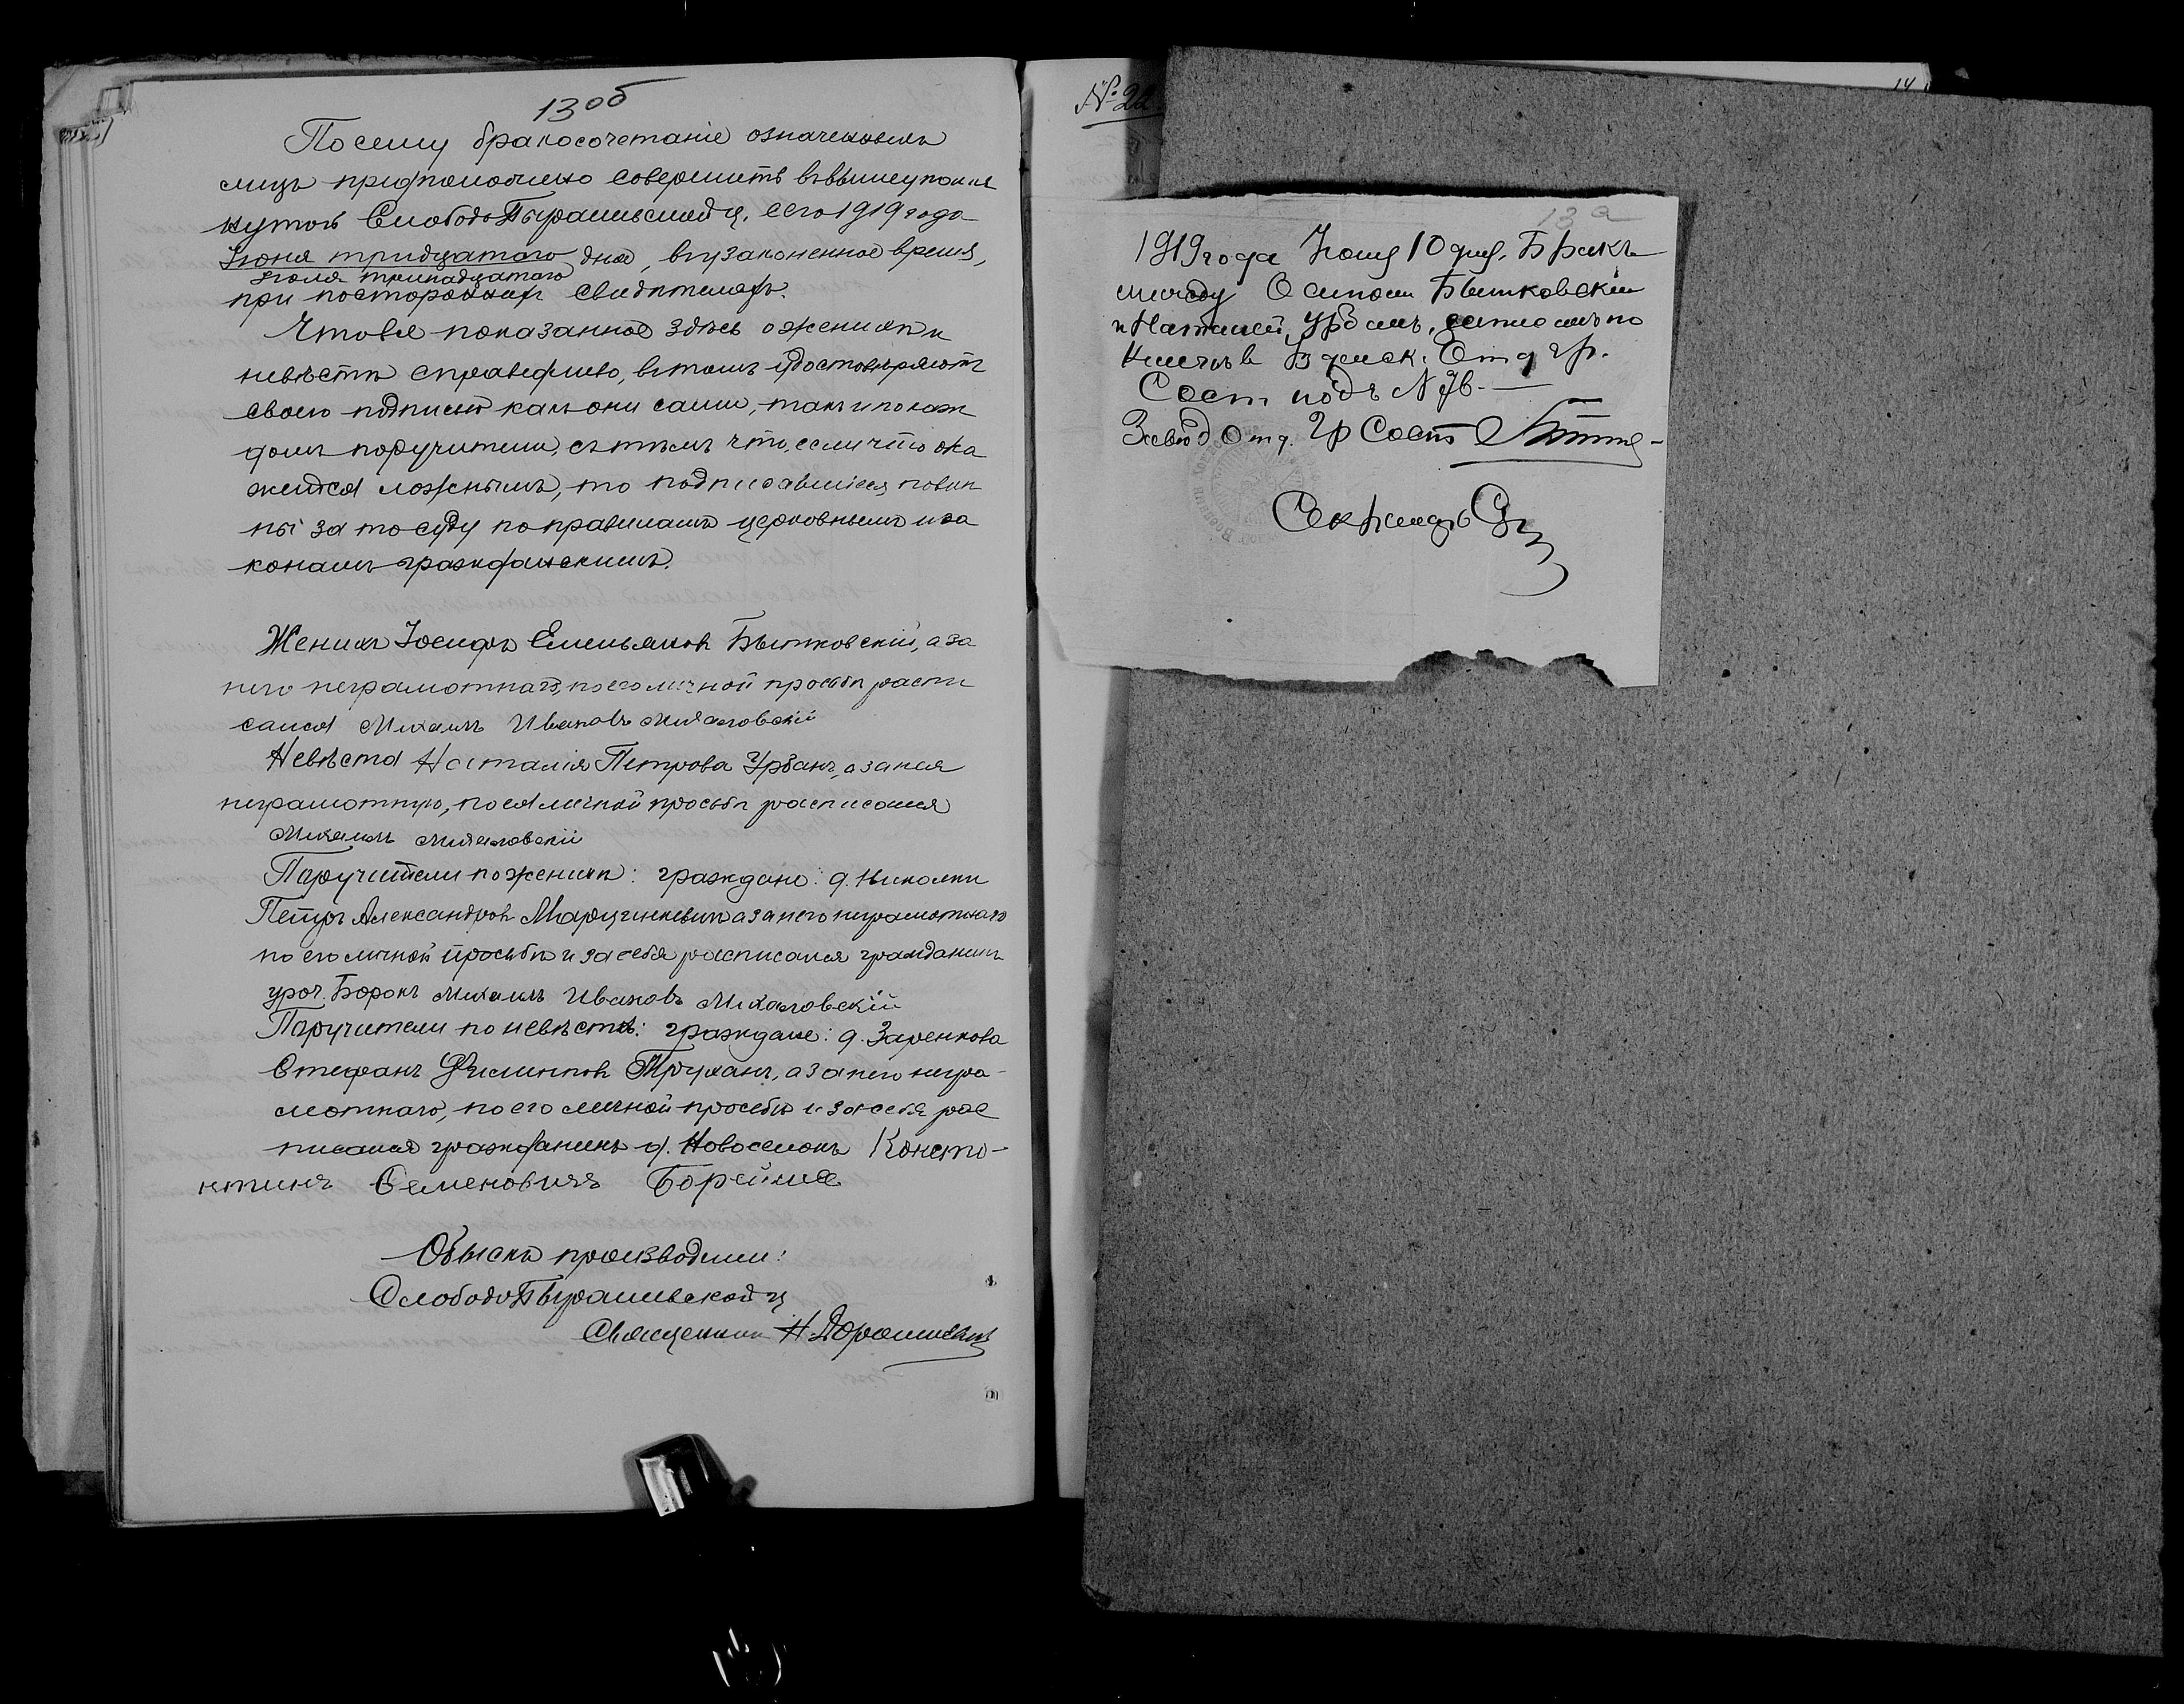 13об
Посему бракосочетаніе означенныхъ
лицъ предположено совершить въ вышеупомя
нутой Слободо Пырашевской ц. сего 1919 года
Іюня тридцатаго дня, въ узаконенное время,
Іюля тринадцатаго
при постороннихъ свидѣтеляхъ.
Что все показанное здѣсь о женихѣ и
невѣстѣ справедливо, въ томъ удостовѣряютъ
своею подписью какъ они сами, такъ и по каж
домъ поручители, съ тѣмъ что, если что ока
жется ложнымъ, то подписавшіеся повин
ны за то суду по правиламъ церковнымъ и за
конамъ гражданскимъ.
Женихъ Іосифъ Емельяновъ Бытковскій, а за
него неграмотнаго, по его личной просьбѣ распи
сался Михаилъ Ивановъ Михаловскій
Невѣста Наталія Петрова Урбанъ, а за нея
неграмотную, по ея личной просьбѣ расписался
Михаилъ Михаловскій
Поручители по женихѣ: граждане: д. Николки
Петръ Александровъ Марцинкевичъ а за него неграмотнаго
по его личной просьбѣ и за себя расписался гражданинъ
уроч. Борокъ Михаилъ Ивановъ Михаловскій
Поручители по невѣстѣ: граждане: д. Заренкова
Стефанъ Труханъ, а за него негра-
мотнаго, по его личной просьбѣ и за себя рас
писался гражданинъ д. Новоселокъ Конста-
нтинъ Семеновичъ Борейша
Обыскъ производили:
Слободо Пырашевской ц
Священникъ Н. Дорошевичъ
№ 22
14
13а
1919 года Іюня 10 дня. Бракъ
между Осипомъ Бытковскимъ
и Наталіей Урбанъ, записанъ по
книгѣ в Отд гр.
Сост подъ N
Завѣд Отд. Гр Сост
Секретарь